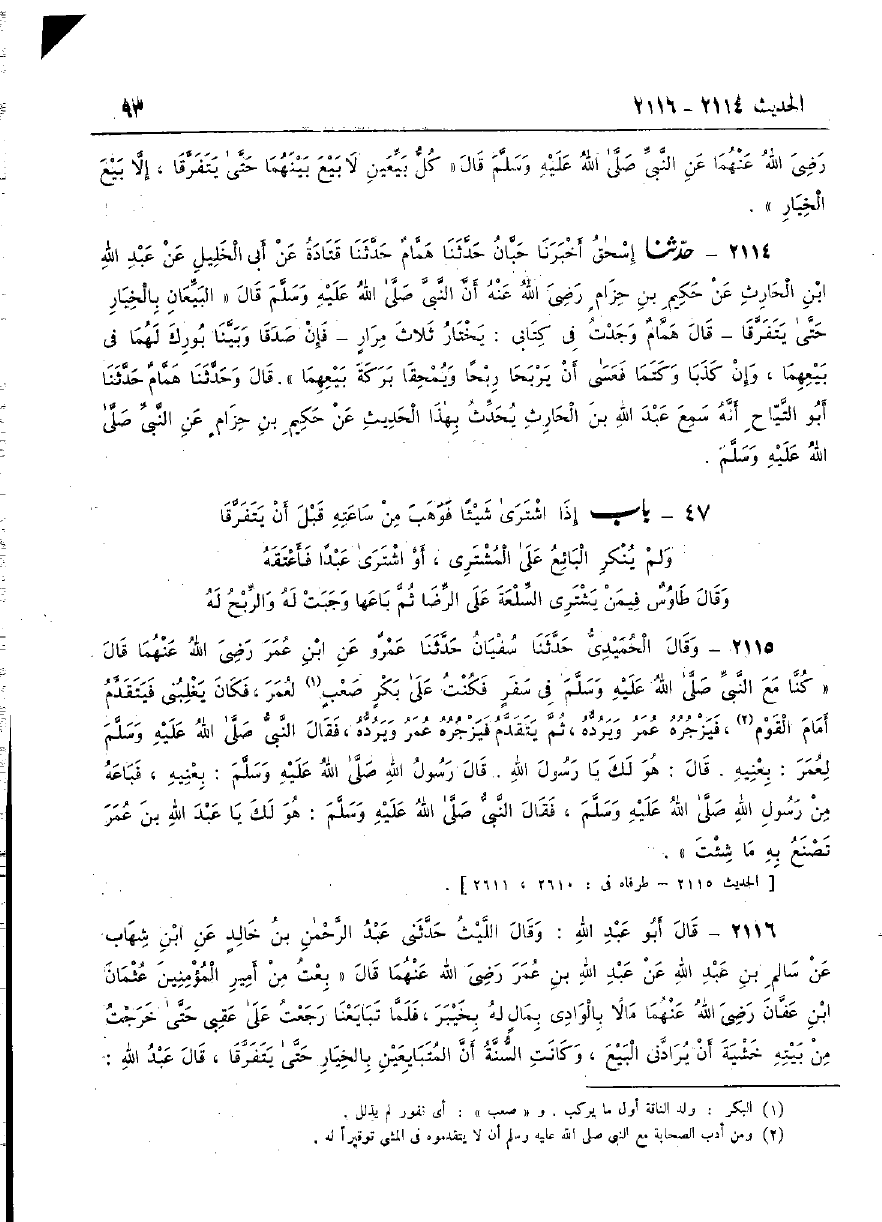 الحديث ٢١١٤ - ٢١١٦ ٩٣
رَضِىَ اللهُ عَنْهُمَا عَنِ النَّبِىِّ صَلَّىٰ اللهُ عَلَيْهِ وَسَلَّمَ قَالَ « كُلُّ بَيِّعَينِ لَا بَيْعَ بَيْنَهُمَا حَتَّىٰ يَتَفَرَّقَا ، إِلَّا بَيْعَ
الْخِيَارِ » .
٢١١٤ – حدّثنا إِسْحٰقُ أَخْبَرَنَا حَبَّانُ حَدَّثَنَا هَمَّامٌ حَدَّثَنَا قَتَادَةُ عَنْ أَبِى الْخَلِيلِ عَنْ عَبْدِ اللهِ
ابْنِ الْحَارِثِ عَنْ حَكِيمِ بنِ حِزَامٍ رَضِىَ اللهُ عَنْهُ أَنَّ النَّبِىَّ صَلَّىٰ اللهُ عَلَيْهِ وَسَلَّمَ قَالَ « البَيِّعَانِ بِالْخِيَارِ
حَتَّىٰ يَتَفَرَّقَا – قَالَ هَمَّامٌ وَجَدْتُ فِى كِتَابِى : يَخْتَارُ ثَلَاثَ مِرَارٍ – فَإِنْ صَدَقَا وَبَيَّنَا بُورِكَ لَهُمَا فِى
بَيْعِهِمَا ، وَإِنْ كَذَبَا وَكَتَمَا فَعَسَىٰ أَنْ يَرْبَحَا رِبْحًا وَيُمْحِقَا بَرَكَةَ بَيْعِهِمَا » . قَالَ وَحَدَّثَنَا هَمَّامٌ حَدَّثَنَا
أَبُو التَّيَّاحِ أَنَّهُ سَمِعَ عَبْدَ اللهِ بنَ الْحَارِثِ يُحَدِّثُ بِهٰذَا الْحَدِيثِ عَنْ حَكِيمِ بنِ حِزَامٍ عَنِ النَّبِىِّ صَلَّىٰ
اللهُ عَلَيْهِ وَسَلَّمَ .
٤٧ – باب إِذَا اشْتَرَىٰ شَيْئًا فَوَهَبَ مِنْ سَاعَتِهِ قَبْلَ أَنْ يَتَفَرَّقَا
وَلَمْ يُنْكِرِ الْبَائِعُ عَلَىٰ الْمُشْتَرِى ، أَوْ اشْتَرَىٰ عَبْدًا فَأَعْتَقَهُ
وَقَالَ طَاوُسٌ فِيمَنْ يَشْتَرِى السِّلْعَةَ عَلَى الرِّضَا ثُمَّ بَاعَهَا وَجَبَتْ لَهُ وَالرِّبْحُ لَهُ
٢١١٥ – وَقَالَ الْحُمَيْدِىُّ حَدَّثَنَا سُفْيَانُ حَدَّثَنَا عَمْرٌو عَنِ ابْنِ عُمَرَ رَضِىَ اللهُ عَنْهُمَا قَالَ
« كُنَّا مَعَ النَّبِىِّ صَلَّىٰ اللهُ عَلَيْهِ وَسَلَّمَ فِى سَفَرٍ فَكُنْتُ عَلَىٰ بَكْرٍ صَعْبٍ(١) لِعُمَرَ ، فَكَانَ يَغْلِبُنِى فَيَتَقَدَّمُ
أَمَامَ الْقَوْمِ(٢) ، فَيَزْجُرُهُ عُمَرُ وَيَرُدُّهُ ، ثُمَّ يَتَقَدَّمُ فَيَزْجُرُهُ عُمَرُ وَيَرُدُّهُ ، فَقَالَ النَّبِىُّ صَلَّىٰ اللهُ عَلَيْهِ وَسَلَّمَ
لِعُمَرَ : بِعْنِيهِ . قَالَ : هُوَ لَكَ يَا رَسُولَ اللهِ . قَالَ رَسُولُ اللهِ صَلَّىٰ اللهُ عَلَيْهِ وَسَلَّمَ : بِعْنِيهِ ، فَبَاعَهُ
مِنْ رَسُولِ اللهِ صَلَّىٰ اللهُ عَلَيْهِ وَسَلَّمَ ، فَقَالَ النَّبِىُّ صَلَّىٰ اللهُ عَلَيْهِ وَسَلَّمَ : هُوَ لَكَ يَا عَبْدَ اللهِ بنَ عُمَرَ
تَصْنَعُ بِهِ مَا شِئْتَ » .
[ الحديث ٢١١٥ – طرفاه فى : ٢٦١٠ ، ٢٦١١ ] .
٢١١٦ – قَالَ أَبُو عَبْدِ اللهِ : وَقَالَ اللَّيْثُ حَدَّثَنِى عَبْدُ الرَّحْمٰنِ بنُ خَالِدٍ عَنِ ابْنِ شِهَابٍ
عَنْ سَالِمِ بنِ عَبْدِ اللهِ عَنْ عَبْدِ اللهِ بنِ عُمَرَ رَضِىَ اللهُ عَنْهُمَا قَالَ « بِعْتُ مِنْ أَمِيرِ الْمُؤْمِنِينَ عُثْمَانَ
ابْنِ عَفَّانَ رَضِىَ اللهُ عَنْهُمَا مَالًا بِالْوَادِى بِمَالٍ لَهُ بِخَيْبَرَ ، فَلَمَّا تَبَايَعْنَا رَجَعْتُ عَلَىٰ عَقِبِى حَتَّىٰ خَرَجْتُ
مِنْ بَيْتِهِ خَشْيَةَ أَنْ يُرَادَّنِى الْبَيْعَ ، وَكَانَتِ السُّنَّةُ أَنَّ الْمُتَبَايِعَيْنِ بِالخِيَارِ حَتَّىٰ يَتَفَرَّقَا ، قَالَ عَبْدُ اللهِ :
(١) البكر : ولد الناقة أول ما يركب . و « صعب » : أى نفور لم يذلل .
(٢) ومن أدب الصحابة مع النبى صلى الله عليه وسلم أن لا يتقدموه فى المشى توقيراً له .